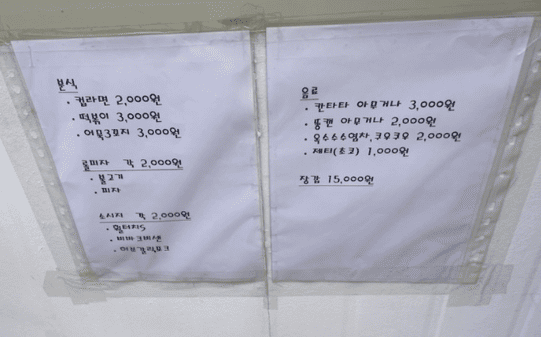 분식
· 컵라면 2,000원
· 떡볶이 3,000원
· 어묵3꼬지 3,000원
롤피자 각 2,000원
· 불고기
· 피자
소시지 각 2,000원
음료
· 칸타타 아무거나 3,000원
· 뚱캔 아무거나 2,000원
· 옥수수수염차, 2,000원
· 제티(초코) 1,000원
장갑 15,000원